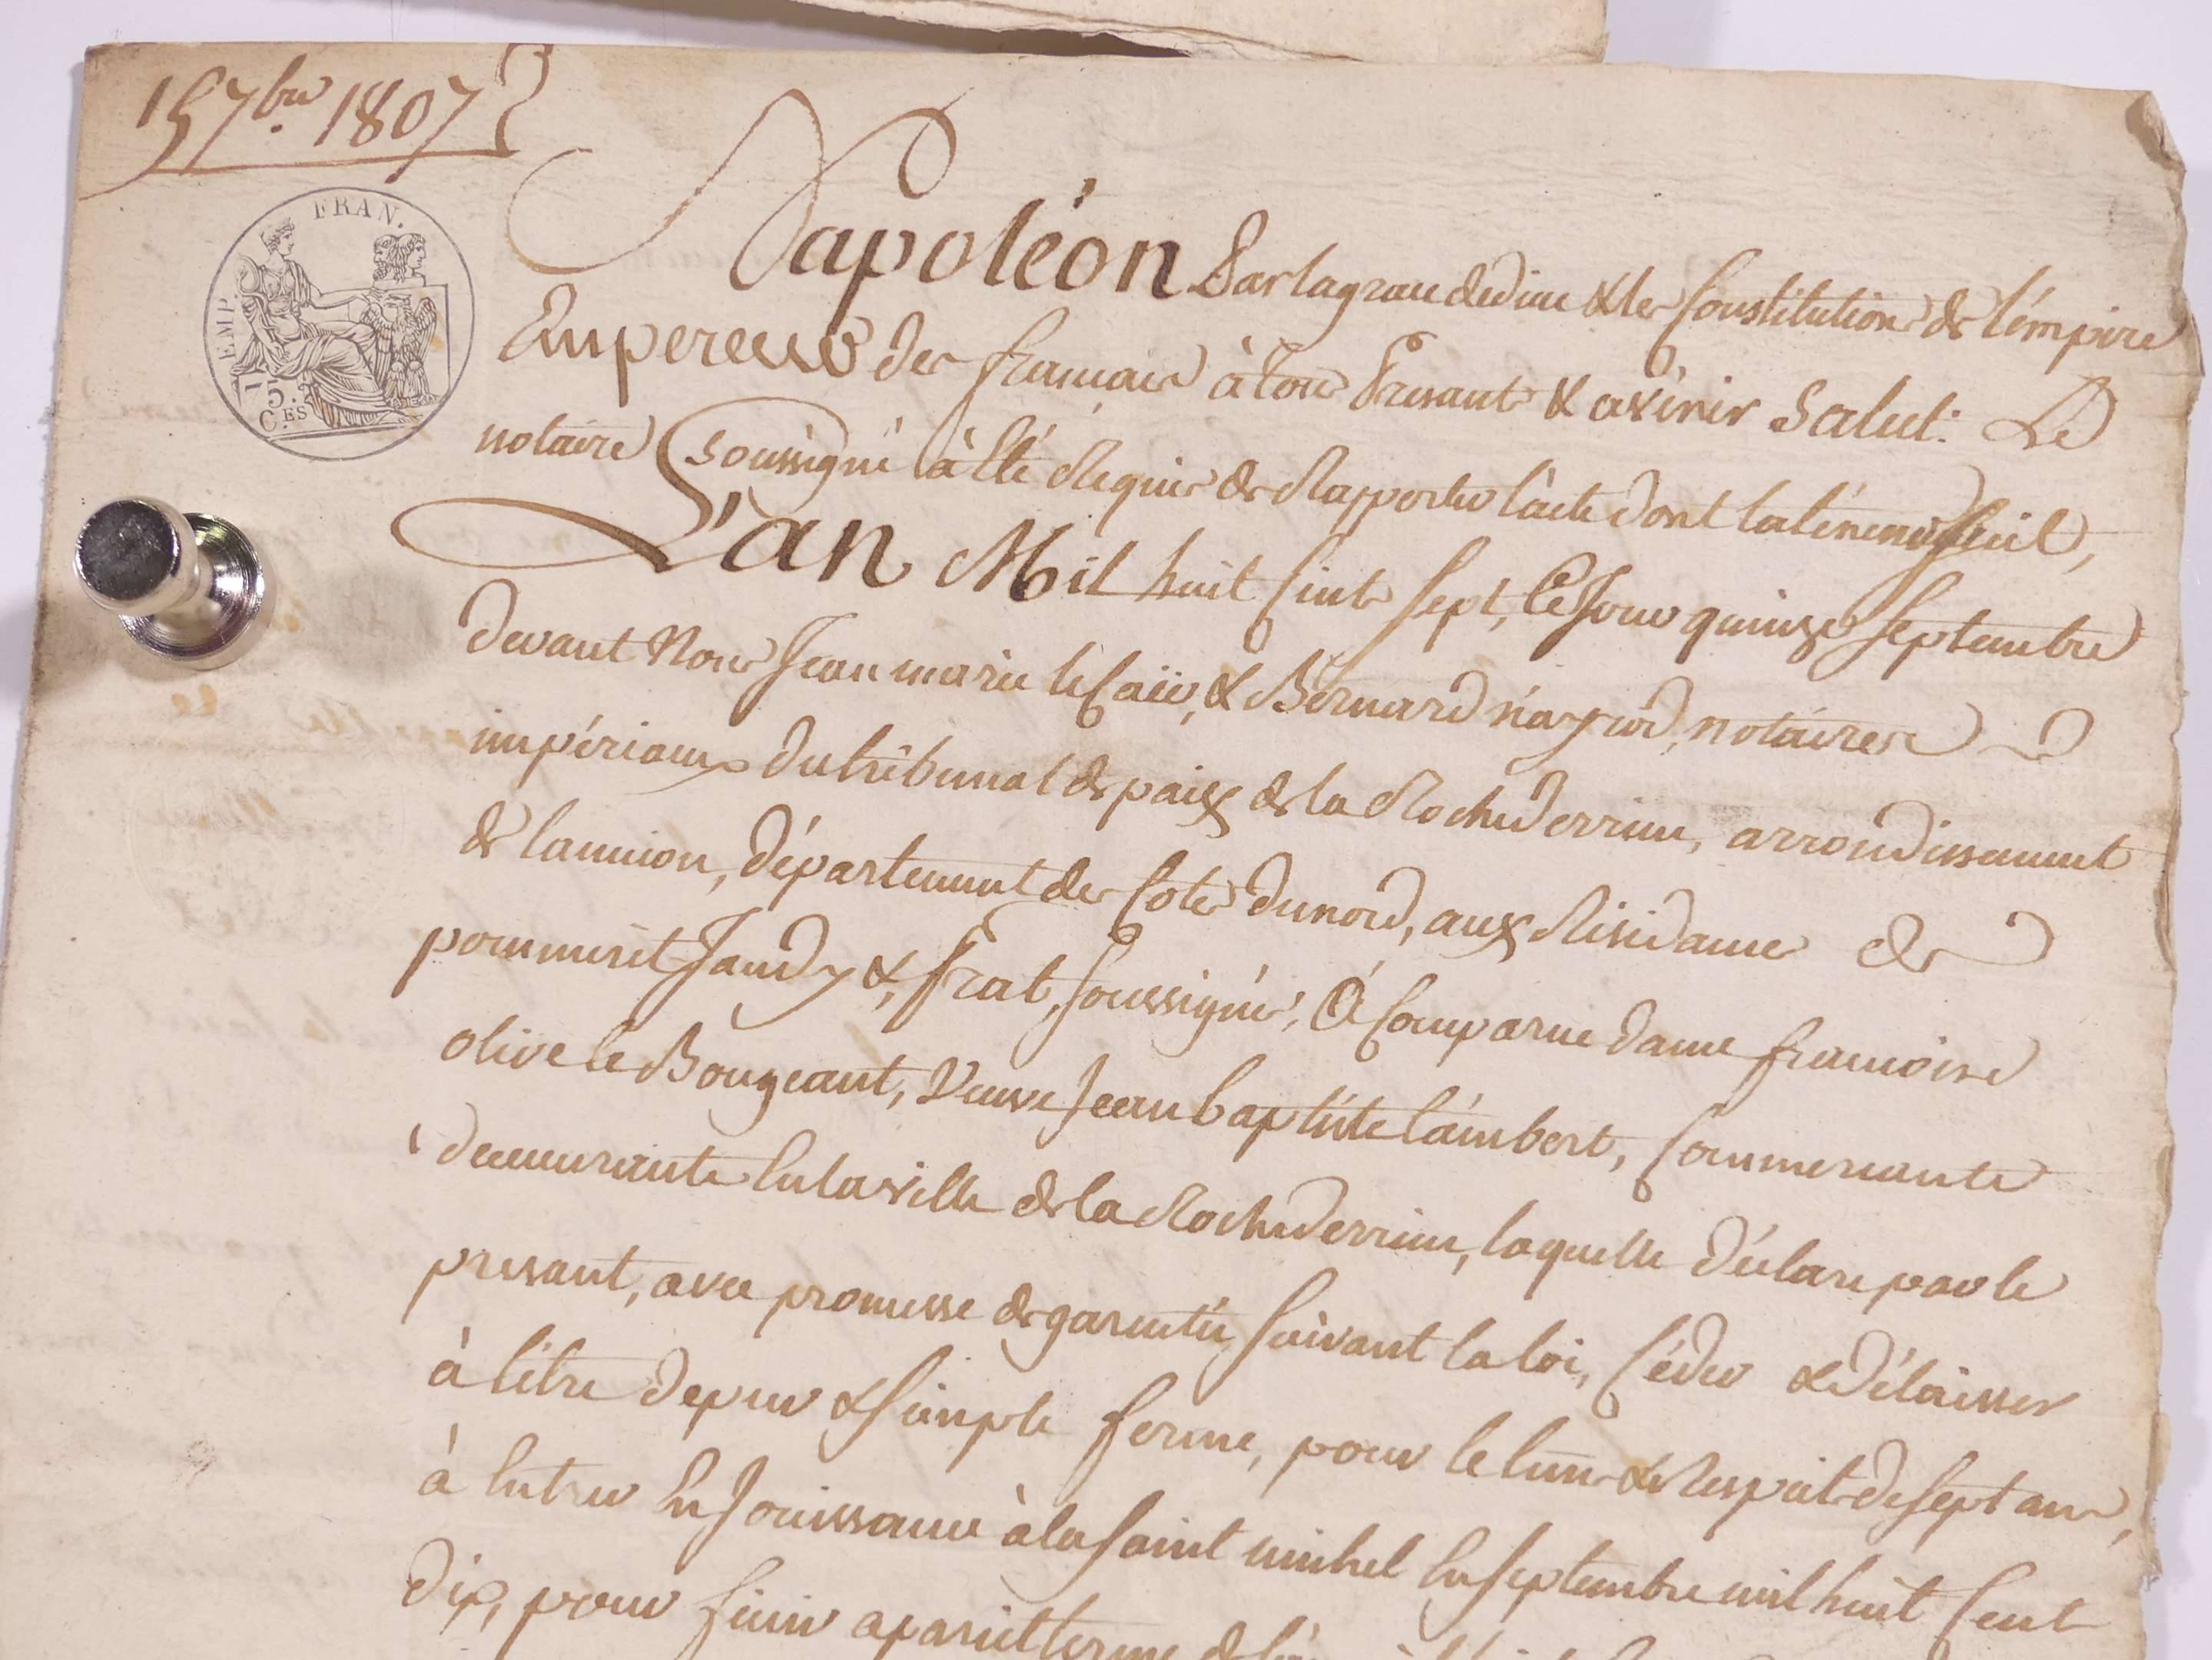 15 7bre 1807
FRAN.
EMP.
75.
CES
Napoléon Par la grace de dieu & les Constitutions de l'émpire
Empereur des français à tous Présants & avénir Salut: Le
notaire soussigné à Eté Requis de Rapporter l'acte dont la téneur suit,
L'an Mil huit Cents sept, Ce Jour quinze septembre
devant Nous Jean marie & Bérnard notáires
impériaux du tribunal de paix de la Rochederrien, arrondissement
de lannion, département des Cotes du nord, aux Résidances de
pommerit Jaudy & Prat, soussignés, A Comparue dame françoise
olive le Bougeant, Veuve Jean baptiste lámbert, Commercante
demeurante En la ville de la Rochederrien, laquelle déclare par le
présant, avec promesse de garentie suivant la loi, Céder & délaisser
à titre de pur & simple ferme, pour le tems & Respait de sept ans,
à Entrer En Jouissance à la saint michel En septembre mil huit Cent
dix, pour finir à pariel terme